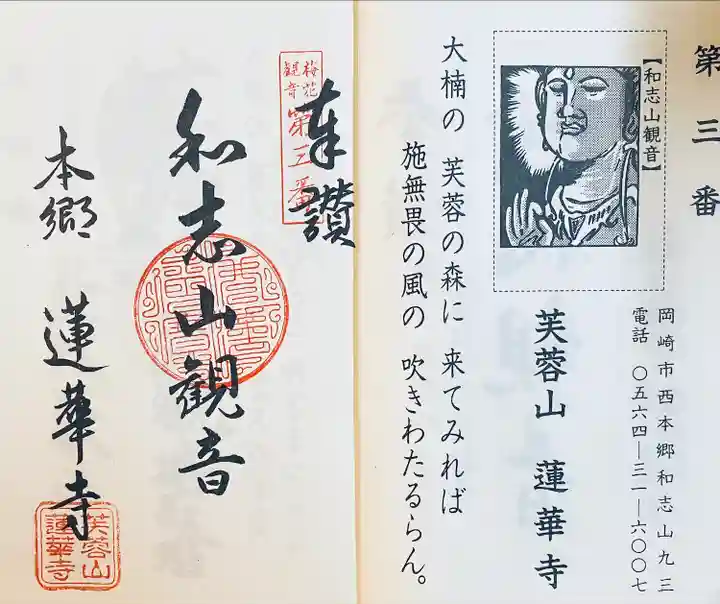 第三番
【和志山観音】
岡崎市西本郷和志山九三
電話 〇五六四―三一―六〇〇七
芙蓉山 蓮華寺
大楠の 芙蓉の森に 来てみれば
施無畏の風の 吹きわたるらん。
奉讃
桜花
観音
第三番
和志山観音
本郷 蓮華寺
芙蓉山
蓮華寺